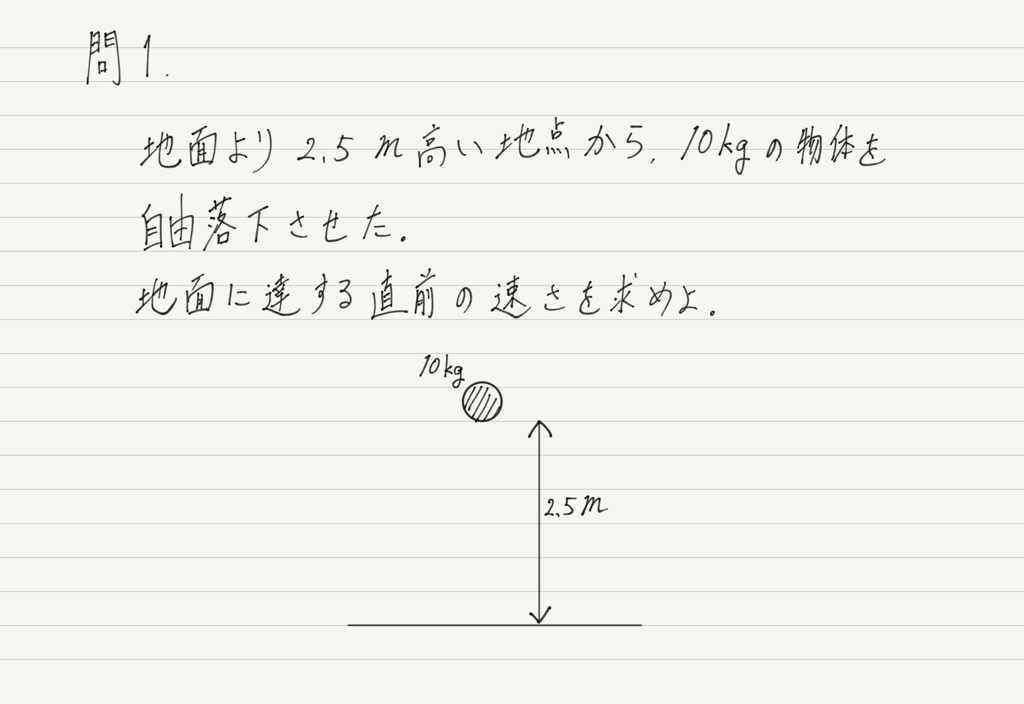 問1.
地面より 2.5 m 高い地点から, 10kgの物体を
自由落下させた.
地面に達する直前の速さを求めよ.
10kg
2.5m